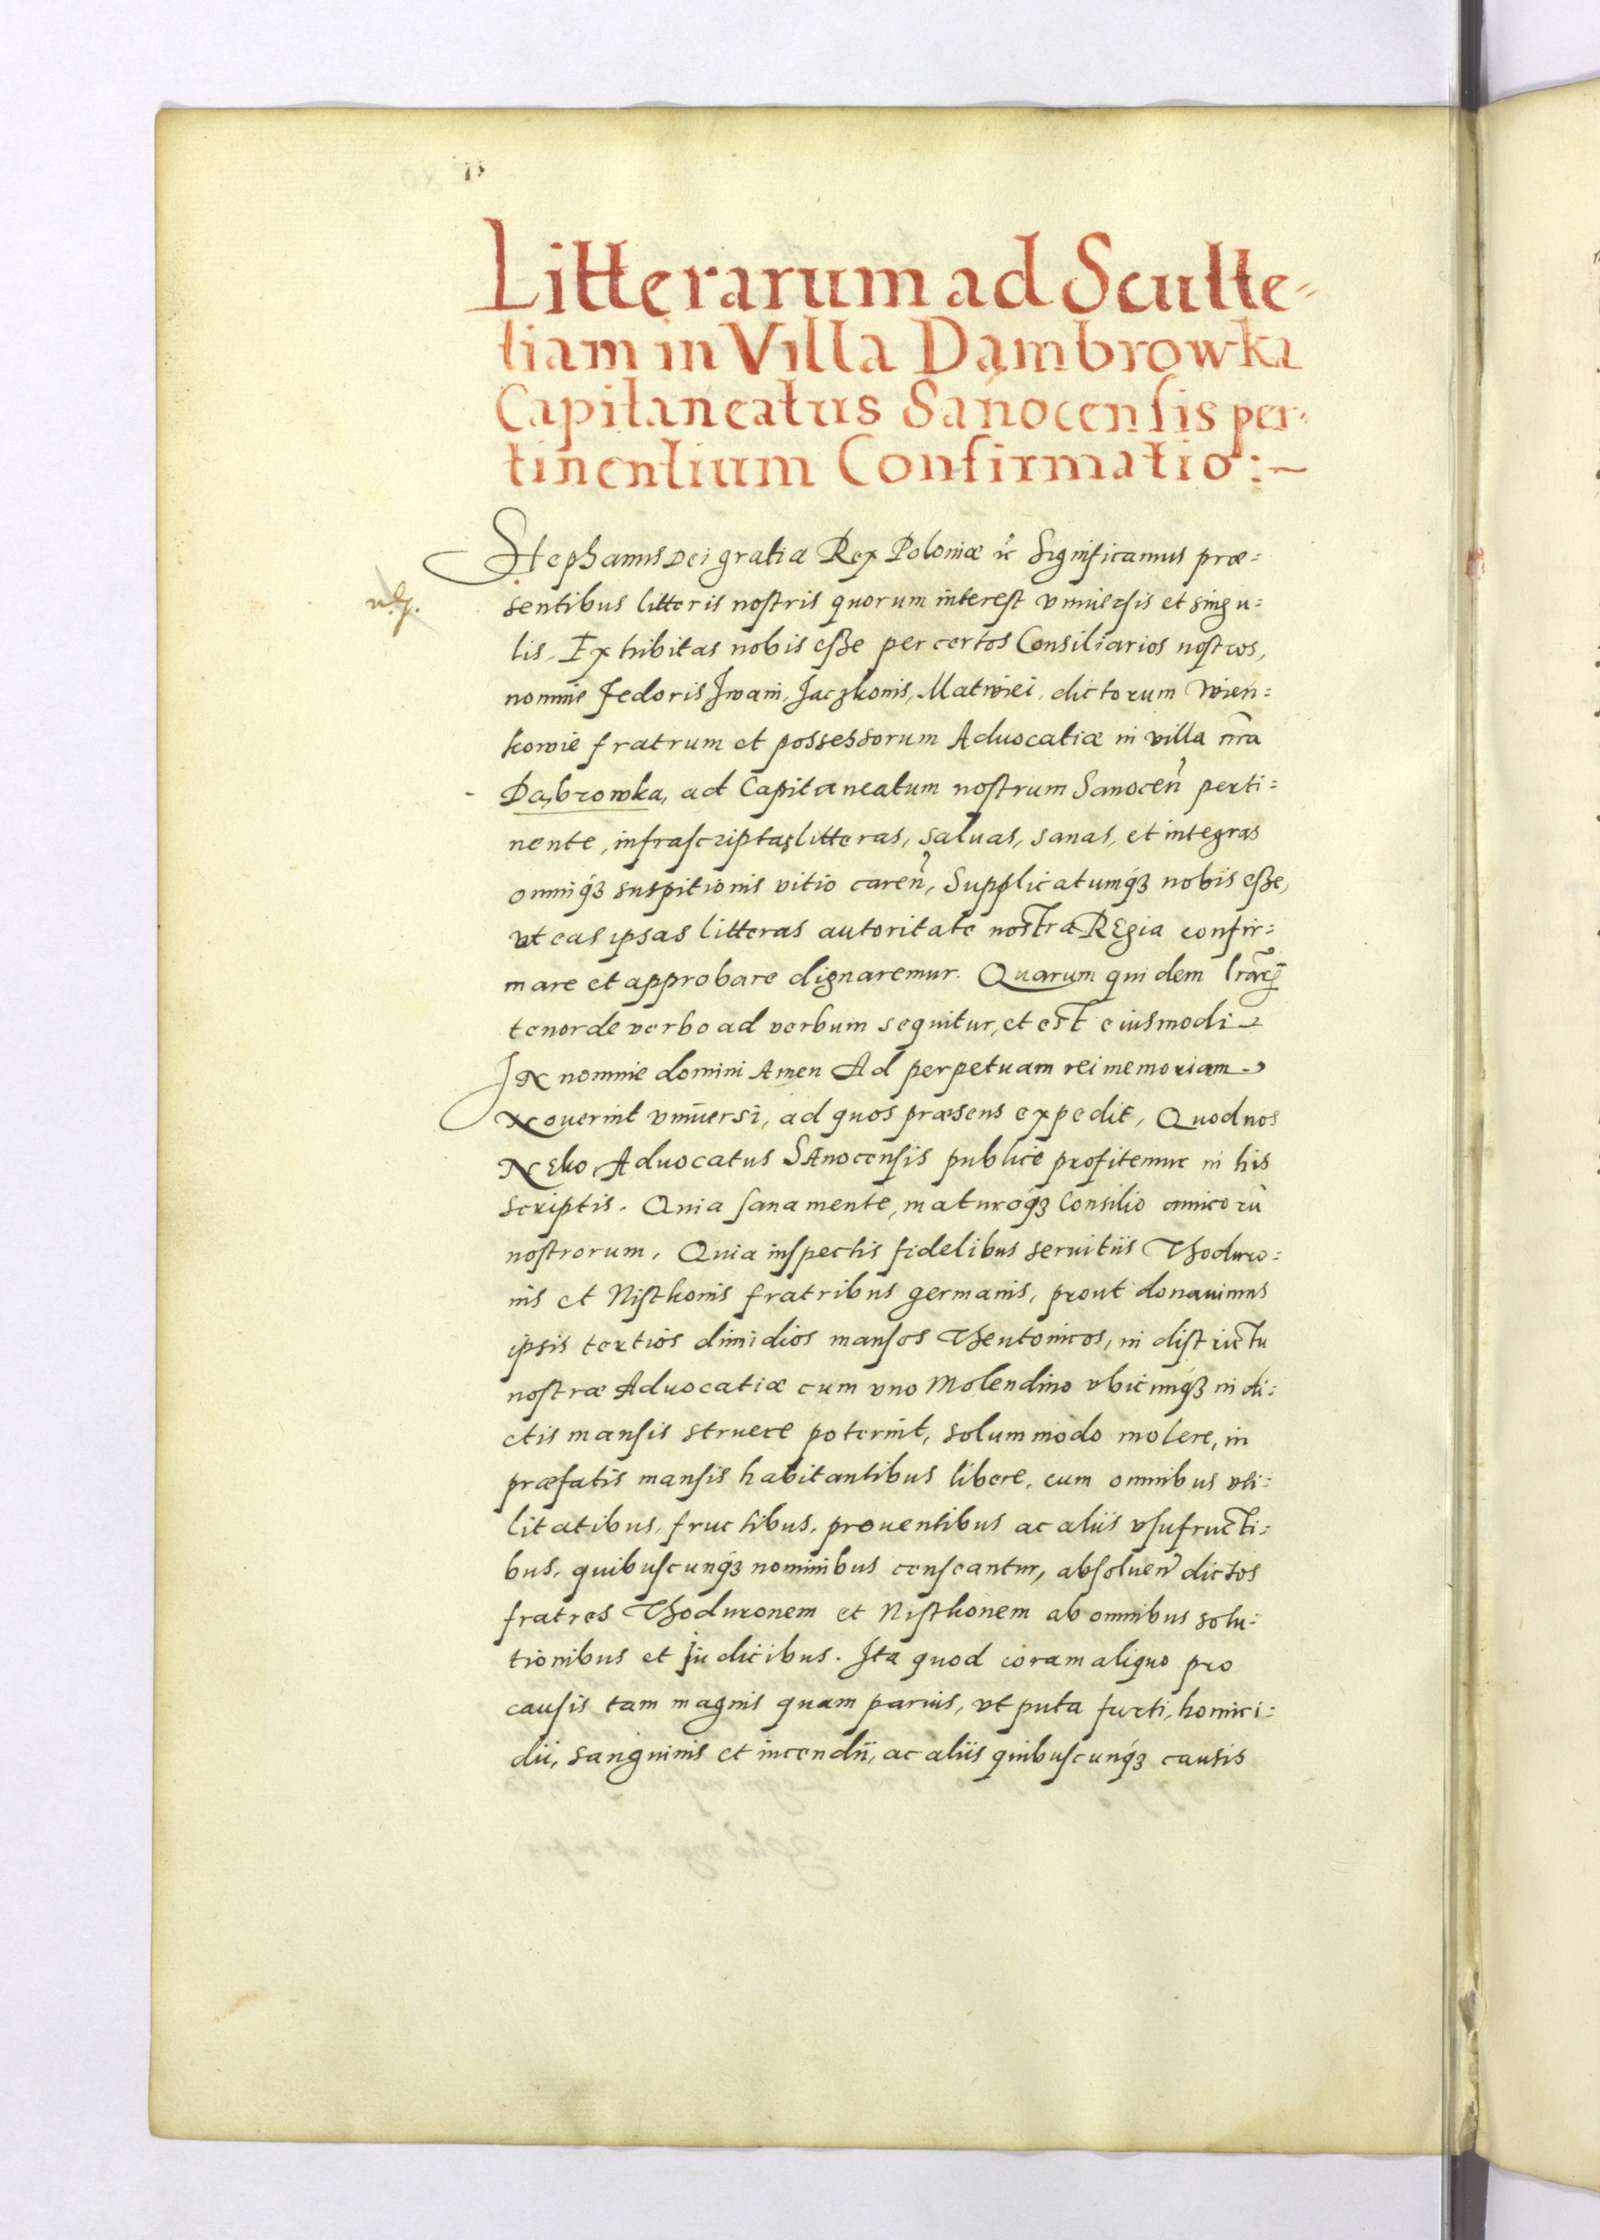 Litterarum ad Sculte=
tiam in Villa Dąmbrowka
Capitaneatus Sanocensis per=
tinentium Confirmatio:~
Stephanus Dei gratia Rex Poloniæ &c Significamus præ=
sentibus litteris nostris quorum interest vniuersis et singu=
lis, Exhibitas nobis eße per certos Consiliarios nostros,
nomine Fedoris Jwani, Jaczkonis, Matwiei, dictorum Wien=
kowie fratrum et possessorum Aduocatiæ in villa nrã
Dąbrowka, ad Capitaneatum nostrum Sanocen̄ perti=
nente, infrascriptas litteras, saluas, sanas, et integras
omniq́ꝫ suspitionis vitio caren̄, Supplicatumq́ꝫ nobis eße,
vt eas ipsas litteras autoritate nostra REgia confir=
mare et approbare dignaremur. Quarum quidem lrãrꝫ
tenor de verbo ad verbum sequitur, et est eiusmodi
JN nomine domini Amen Ad perpetuam rei memoriam.
Nouerint vniuersi, ad quos præsens expedit, Quod nos
NEko Aduocatus SAnocensis publice profitemur in his
scriptis. Quia sana mente, maturoq́ꝫ Consilio amicorū
nostrorum, Quia inspectis fidelibus seruitiis Thoduro=
nis et Nisthonis fratribus germanis, prout donauimus
ipsis tertios dimidios mansos Theutonicos, in districtu
nostræ Aduocatiæ cum vno Molendino vbicunq́ꝫ in di=
ctis mansis struere poterint, solummodo molere, in
præfatis mansis habitantibus libere, cum omnibus vti=
litatibus, fructibus, prouentibus ac aliis vsufructi=
bus, quibuscunq́ꝫ nominibus censeantur, absoluen̄ dictos
fratres Thoduronem et Nisthonem ab omnibus solu=
tionibus et judicibus. Jta quod coram aliquo pro
causis tam magnis quam paruis, vt puta furti, homici=
dii, sanguinis et incendii, ac aliis quibuscunq́ꝫ causis